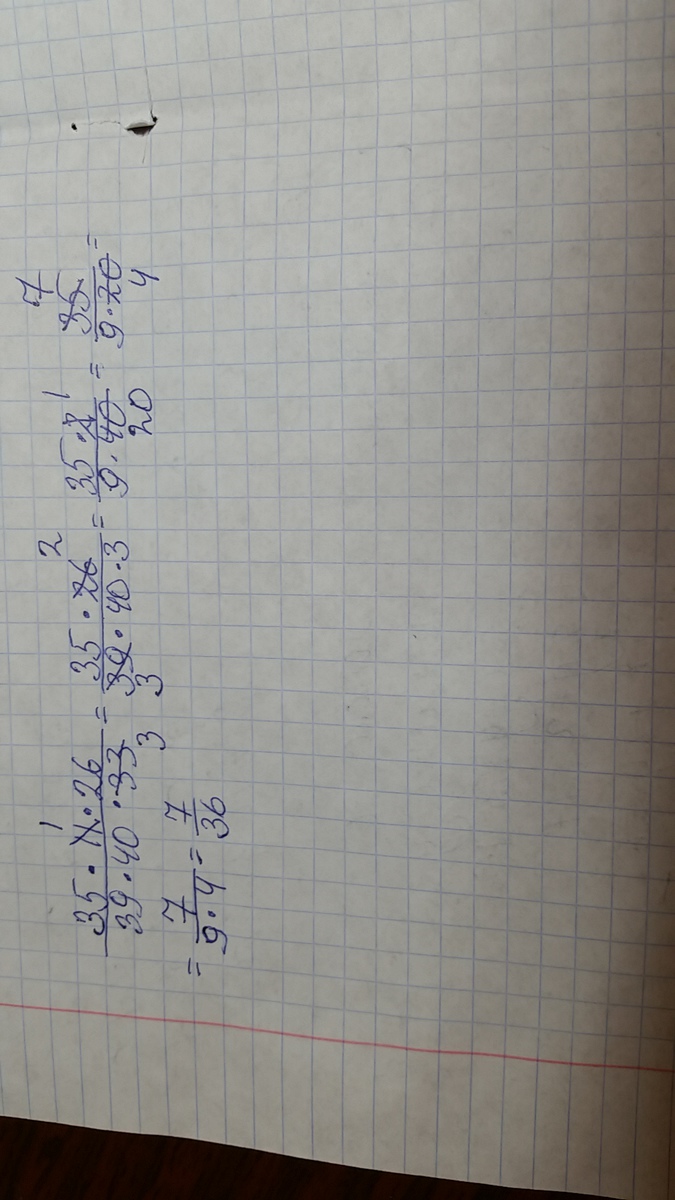 35 · 11 · 26 / 39 · 40 · 33 = 35 · 26 / 39 · 40 · 3 = 35 · 2 / 9 · 40 = 35 / 9 · 20 =
= 7 / 9 · 4 = 7 / 36